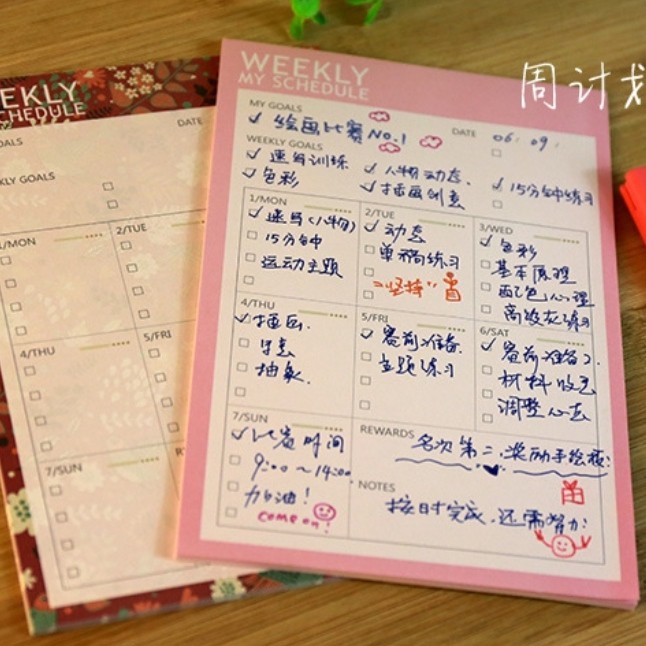 周计划
WEEKLY
MY SCHEDULE
MY GOALS
绘画比赛 NO.1
DATE 06. 09.
WEEKLY GOALS
速写训练
人物动态.
色彩
插画创意
15分钟练习
1/MON
速写(人物)
15分钟
运动主题
2/TUE
动态
单稿练习
"坚持"
3/WED
色彩
基本原理
配色心理
高级灰练习
4/THU
插画.
写意
抽象.
5/FRI
赛前准备.
主题练习
6/SAT
赛前准备2.
材料收拾
调整心态
7/SUN
比赛时间
9:00~14:00
加油!
come on!
REWARDS
名次第二,奖励手绘板:
NOTES
按时完成.还需努力!
EKLY
CHEDULE
OALS
DATE
KLY GOALS
/MON
2/TUE
4/THU
5/FRI
7/SUN